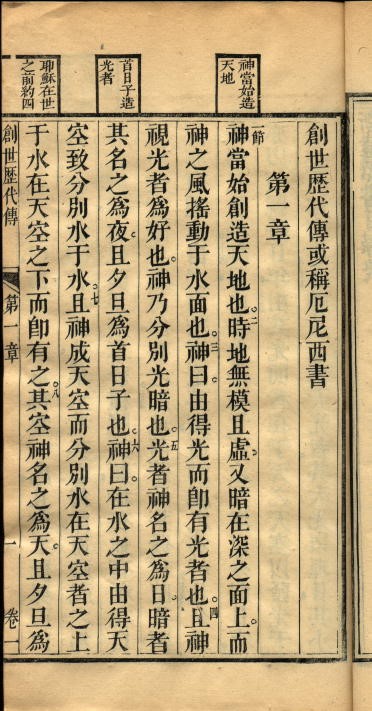 創世歷代傳或稱厄尼西書
第一章
節
神當始創造天地也○二時地無模且虛又暗在深之面上而
神之風搖動于水面也○三神曰由得光而卽有光者也○四且神
視光者為好也神乃分別光暗也○五光者神名之為日暗者
其名之為夜且夕旦為首日子也○六神曰在水之中由得天
空致分別水于水○七且神成天空而分別水在天空者之上
于水在天空之下而卽有之○八其空神名之為天且夕旦為
神當始造
天地
首日子造
光者
耶穌在世
之前約四
創世歷代傳
第一章
一
卷一